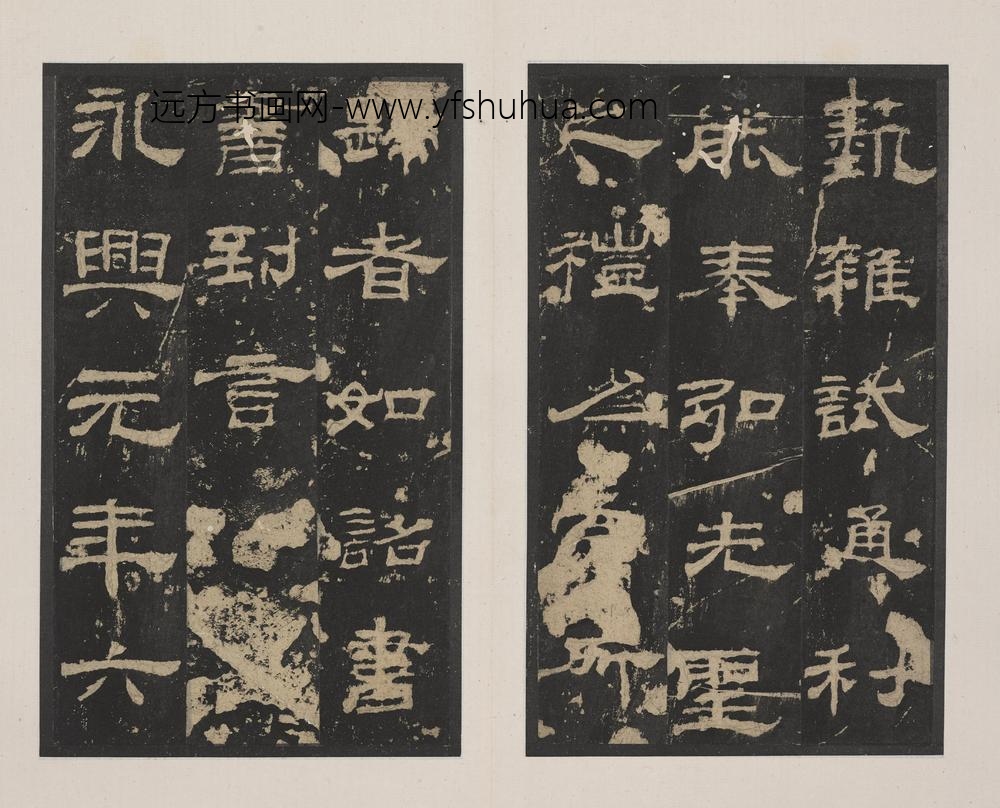 远方书画网-www.yfshuhua.com
藝雜試通利
能奉弘先聖
之禮所
歸者如詔書
書到言
永興元年六